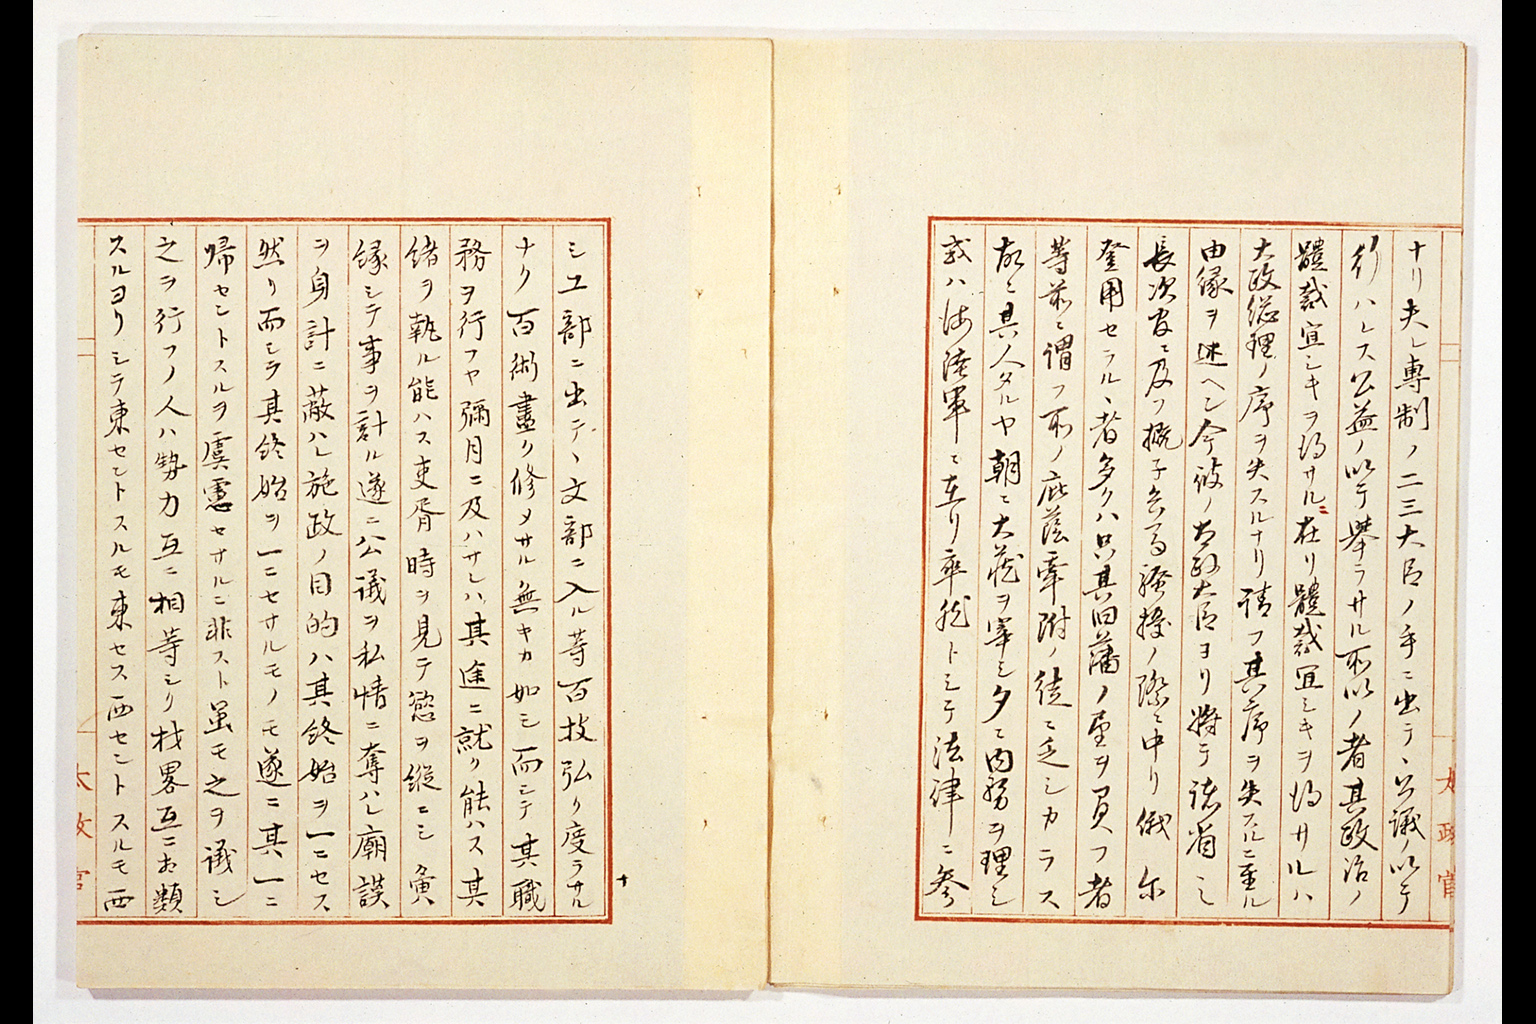 ナリ夫レ專制ノ二三大臣ノ手ニ出テ、公議ノ以テ
行ハレス公益ノ以テ擧ラサル所以ノ者其政治ノ
體裁宜シキヲ得サルニ在リ體裁宜シキヲ得サルハ
大政総理ノ序ヲ失スルナリ請フ其序ヲ失スルニ至ル
由縁ヲ述ヘン今彼ノ太政大臣ヨリ将テ諸省ノ
長次官ニ及フ概子兵馬騒擾ノ際ニ中リ俄尓
登用セラル、者多クハ只其旧藩ノ望ヲ負フ者
等前ニ謂フ所ノ庇蔭牽附ノ徒ニ乏シカラス
故ニ其人タルヤ朝ニ大蔵ヲ宰シ夕ニ内務ヲ理シ
或ハ海陸軍ニ在リ率然トシテ法律ニ参
太政官
シ工部ニ出テ、文部ニ入ル等百技弘ク度ラサル
ナク百術盡ク修メサル無キカ如シ而シテ其職
務ヲ行フヤ彌月ニ及ハサレハ其途ニ就ク能ハス其
緒ヲ執ル能ハス吏胥時ヲ見テ慾ヲ縦ニシ夤
縁シテ事ヲ計ル遂ニ公議ヲ私情ニ奪ハレ廟謨
ヲ身計ニ蔽ハレ施政ノ目的ハ其終始ヲ一ニセス
然リ而シテ其終始ヲ一ニセサルモノモ遂ニ其一ニ
帰セントスルヲ虞慮セサルニ非スト虽モ之ヲ議シ
之ヲ行フノ人ハ勢力互ニ相等シク材畧互ニお類
スルヨリシテ東セントスルモ東セス西セントスルモ西
太政官